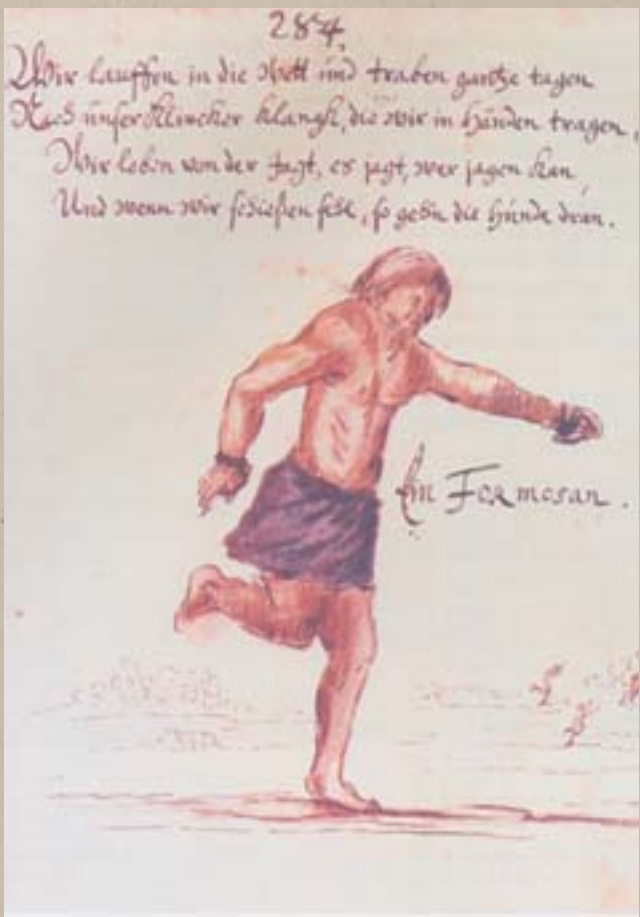 284.
Wir lauffen in die Wett und traben gantze tagen
Nach unser Klincker klangk, die wir in händen tragen,
Wir leben von der Jagt, es jagt, wer jagen kan,
Und wenn wir schießen fehl, so gehn die hunde dran.
Ein Formosan.